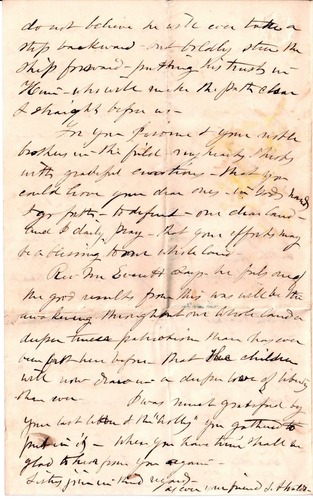 do not believe he will ever take a
step backward - but boldly steer the
ship forward - putting his trust in -
Him - who will make the path clear
& straight before us -
For you & your noble
brothers in - the field - my heart
with grateful emotions - that you
could leave your dear ones - in God's hands
& go forth - to defend - our dear land -
and I daily pray - that your efforts may
be a blessing to our whole land -
Rev Mr Everett says - he feels one of
the good results from this war will be the
awakening throughout our whole land a
deeper patriotism than has ever
been felt here before - that the children
will now draw in - a deeper love of liberty
than ever -
I was much gratified by
your last letter & the "holly" you gathered to
put in it - When you have time I shall be
glad to hear from you again -
Sister join in kind regards -
as ever your friend